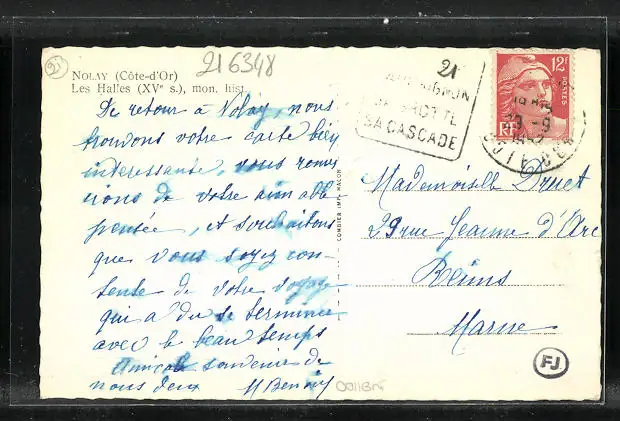 21
216348
NOLAY (Côte-d'Or)
Les Halles (XVe s.), mon. hist.
De retour à Nolay, nous
trouvons votre carte bien
intéressante, vous remer
cions de votre aimable
pensée, et souhaitons
que vous soyez con-
tente de votre voyage
qui a du se terminer
avec le beau temps
Amicale souvenir de
nous deux M Benoit
COMBIER IMP. MACON
21
SA CASCADE
12F
POSTES
RF
Mademoiselle Druet
29 rue Jeanne d'Arc
Reims
Marne
FJ